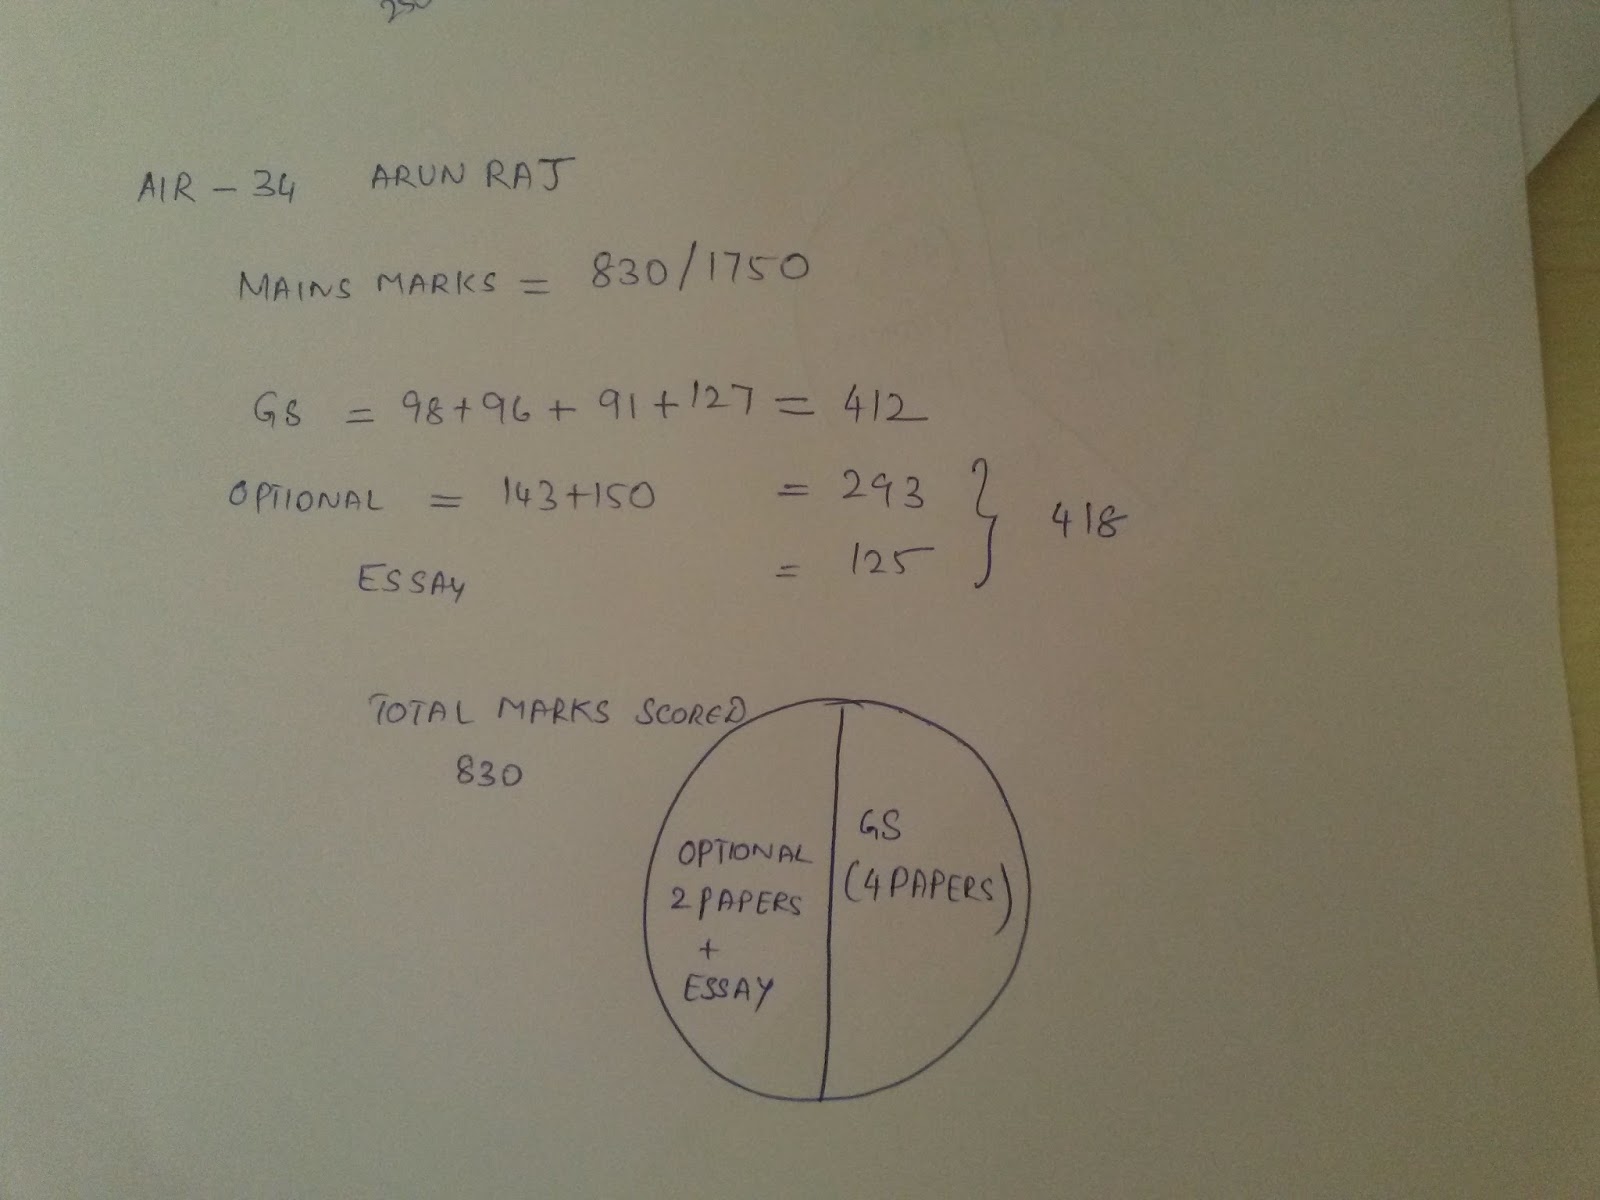 AIR - 34 ARUN RAJ
MAINS MARKS = 830/1750
GS = 98+96+91+127 = 412
OPTIONAL = 143+150 = 293
418
ESSAY = 125
TOTAL MARKS SCORED
830
OPTIONAL
2 PAPERS
+
ESSAY
GS
(4 PAPERS)